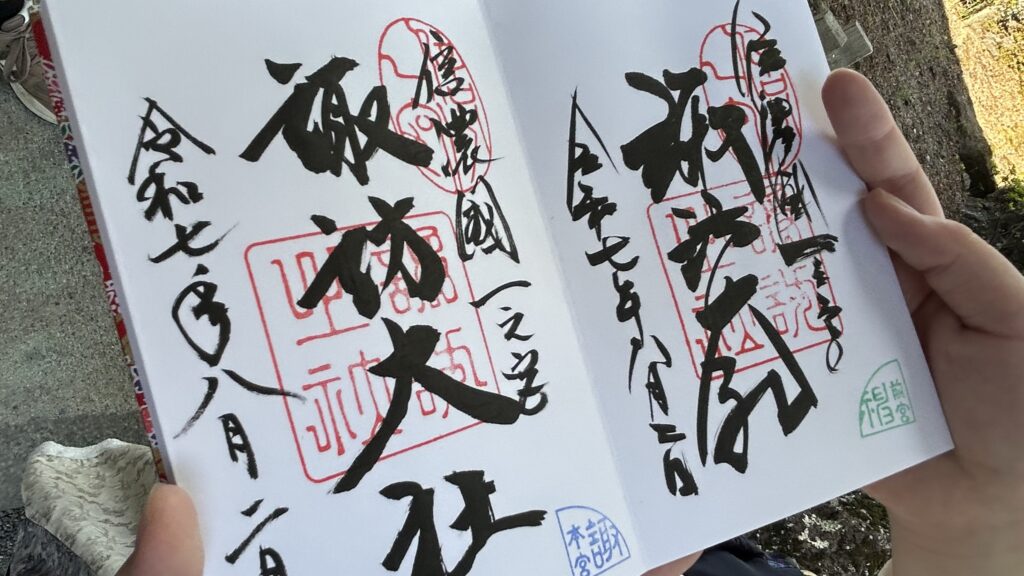 信濃國一之宮
諏訪大社
令和七年八月二日
前宮
信濃國一之宮
諏訪大社
令和七年八月二日
諏
本宮